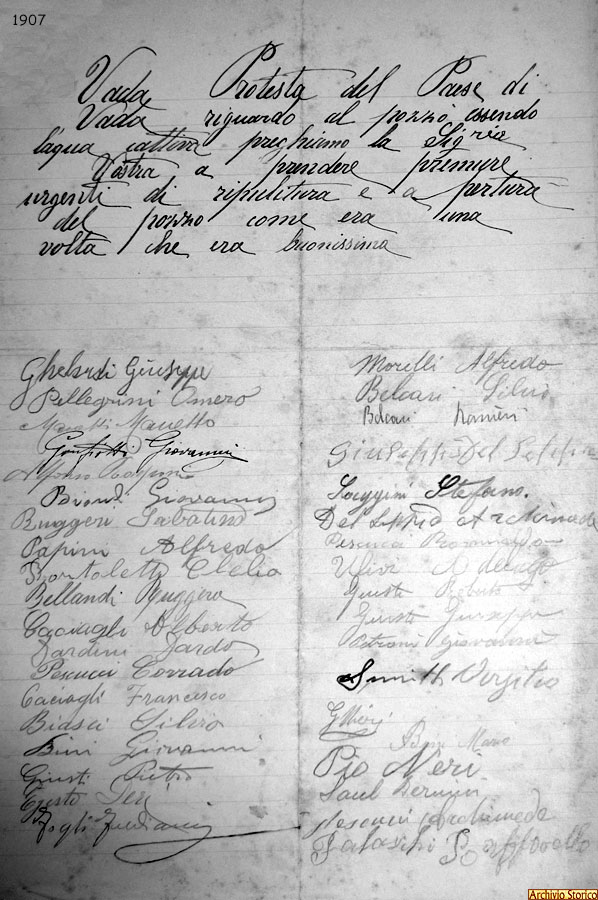 1907
Vada Protesta del Paese di
Vada riguardo al pozzo essendo
laqua cattiva preghiamo la Sigria
Vostra a prendere premure
urgenti di ripulitura e a pertura
del pozzo come era una
volta che era buonissima
Ghelardi Giuseppe
Pellegrini Omero
Manetto
Giovanni
Biondi Giovanni
Ruggeri Sabatino
Papini Alfredo
Bortoletti Clelia
Bellandi Ruggero
Caciagli Alberto
Jardini Jardo
Pescucci Corrado
Caciagli Francesco
Biasci Silvio
Bini Giovanni
Giusti Pietro
Egisto Neri
Fogli
Morelli Alfredo
Belcari Silvio
Belcari Ranieri
Giuseppe Del Seppia
Saggini Stefano.
Del Seppia Archimede
Pescucci
Vivi
Giusti Roberto
Giusti Giuseppe
Petroni Giovanni
Smitti Virgilio
Pio Neri.
Pescucci Archimede
Falaschi
Archivio Storico